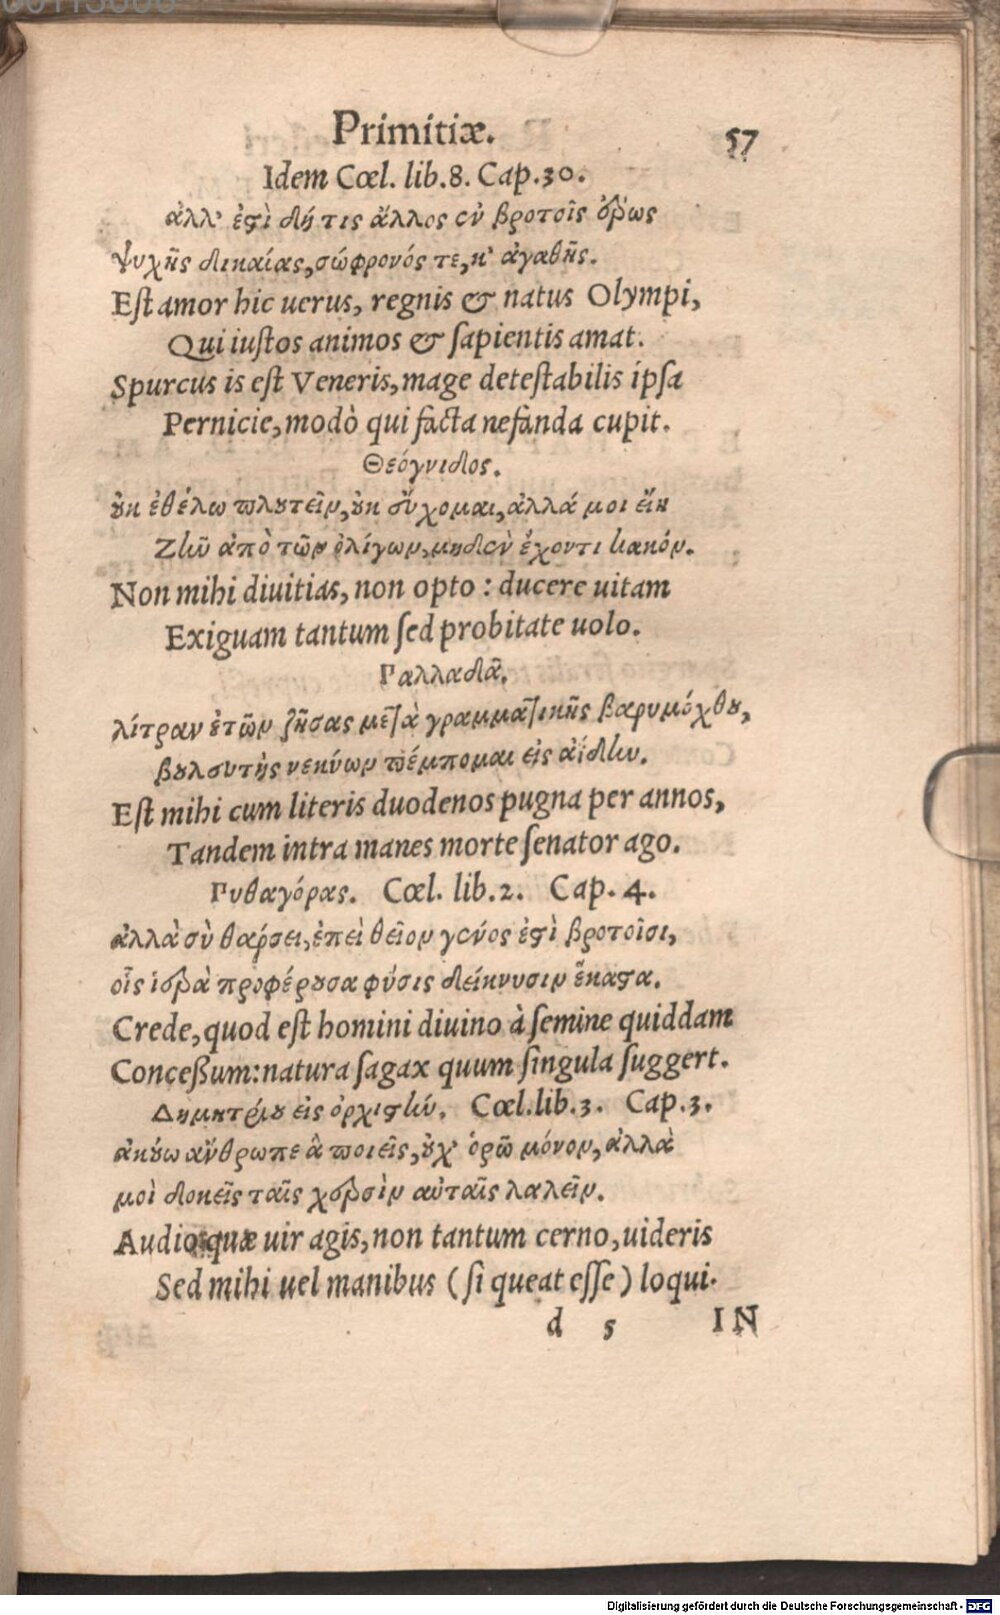 Primitiæ. 57
Idem Cœl. lib.8. Cap.30.
ἀλλ' ἐστὶ δή τις ἄλλος ἐν βροτοῖς ἔρως
Ψυχῆς δικαίας, σώφρονός τε, κ' ἀγαθῆς.
Est amor hic uerus, regnis & natus Olympi,
Qui iustos animos & sapientis amat.
Spurcus is est Veneris, mage detestabilis ipsa
Pernicie, modò qui facta nefanda cupit.
Θεόγνιδος.
οὐκ ἐθέλω πλουτεῖν, οὐκ εὔχομαι, ἀλλά μοι εἴη
Ζῆν ἀπὸ τῶν ὀλίγων, μηδὲν ἔχοντι κακόν.
Non mihi diuitias, non opto : ducere uitam
Exiguam tantum sed probitate uolo.
Γαλλαδᾶ.
λίτραν ἐτῶν ζήσας μετὰ γραμματικῆς βαρυμόχθου,
βουλευτὴς νεκύων πέμπομαι εἰς αἴδην.
Est mihi cum literis duodenos pugna per annos,
Tandem intra manes morte senator ago.
Πυθαγόρας. Cœl. lib.2. Cap.4.
ἀλλὰ σὺ θάρσει, ἐπεὶ θεῖον γένος ἐστὶ βροτοῖσι,
οἷς ἱερὰ προφέρουσα φύσις δείκνυσιν ἕκαστα.
Crede, quod est homini diuino à semine quiddam
Conceßum: natura sagax quum singula suggert.
Δημητρίου εἰς ὀρχιστήν. Cœl.lib.3. Cap.3.
ἀκούω ἄνθρωπε ἃ ποιεῖς, οὐχ' ὁρῶ μόνον, ἀλλὰ
μοὶ δοκεῖς ταῖς χερσὶν αὐταῖς λαλεῖν.
Audio quæ uir agis, non tantum cerno, uideris
Sed mihi uel manibus ( si queat esse ) loqui.
d 5 IN
Digitalisierung gefördert durch die Deutsche Forschungsgemeinschaft - DFG